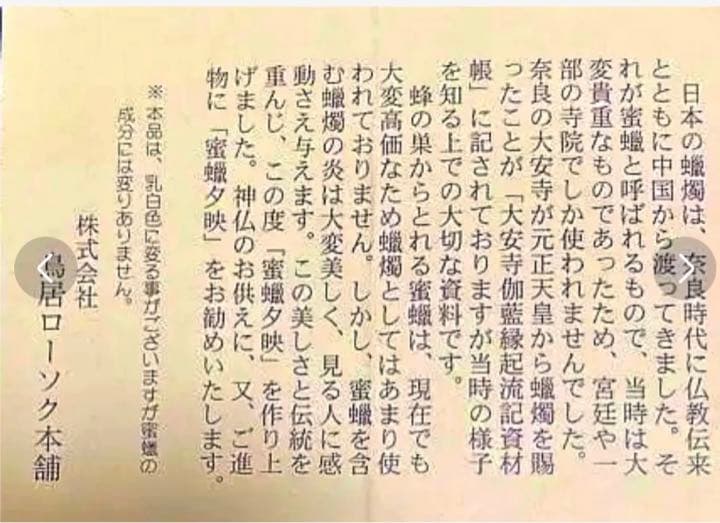 日本の蠟燭は、奈良時代に仏教伝来
とともに中国から渡ってきました。そ
れが蜜蠟と呼ばれるもので、当時は大
変貴重なものであったため、宮廷や一
部の寺院でしか使われませんでした。
奈良の大安寺が元正天皇から蠟燭を賜
ったことが「大安寺伽藍縁起流記資材
帳」に記されておりますが当時の様子
を知る上での大切な資料です。
蜂の巣からとれる蜜蠟は、現在でも
大変高価なため蠟燭としてはあまり使
われておりません。しかし、蜜蠟を含
む蠟燭の炎は大変美しく、見る人に感
動さえ与えます。この美しさと伝統を
重んじ、この度「蜜蠟夕映」を作り上
げました。神仏のお供えに、又、ご進
物に「蜜蠟夕映」をお勧めいたします。
※ 本品は、乳白色に変る事がございますが蜜蠟の
成分には変りありません。
株式会社
鳥居ローソク本舗